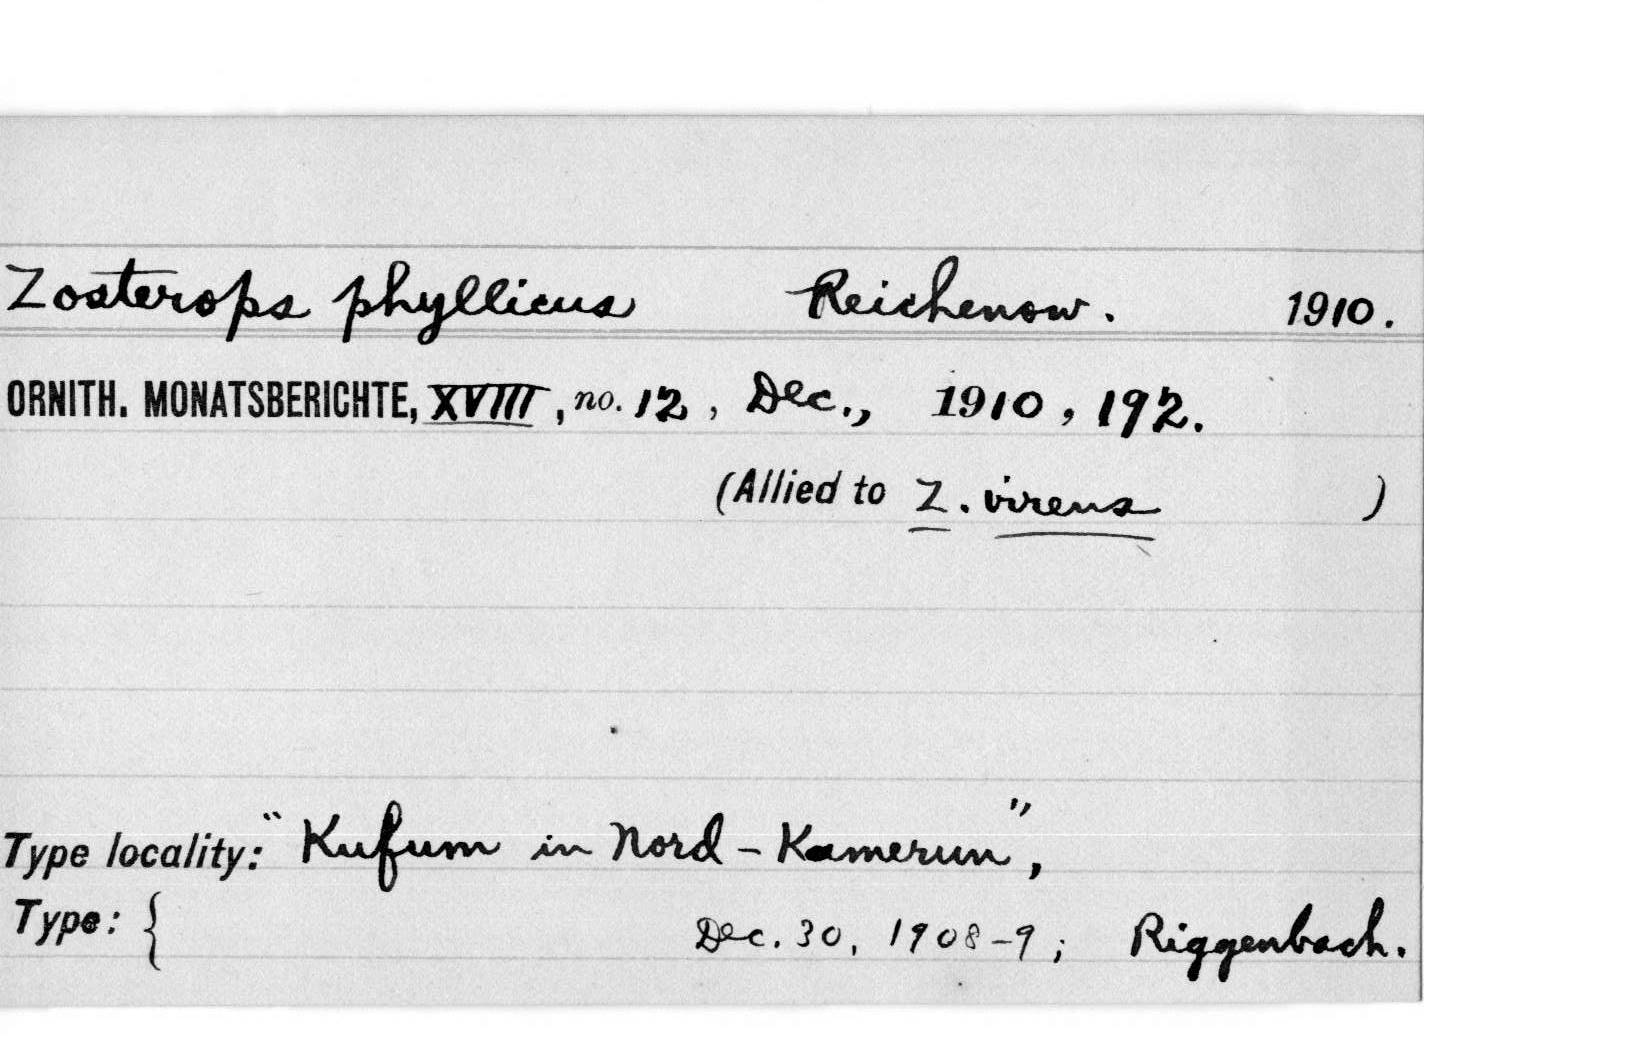 Zosterops phyllicus Reichenow. 1910.
ORNITH. MONATSBERICHTE, XVIII, no. 12, Dec., 1910, 192.
(Allied to Z. virens )
Type locality: "Kufum in Nord-Kamerun",
Type: { Dec. 30, 1908-9; Riggenbach.